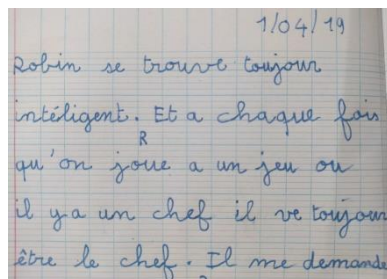 1/04/19
Robin se trouve toujour
intéligent. Et a chaque fois
R
qu'on joue a un jeu ou
il y a un chef il ve toujour
être le chef. Il me demande